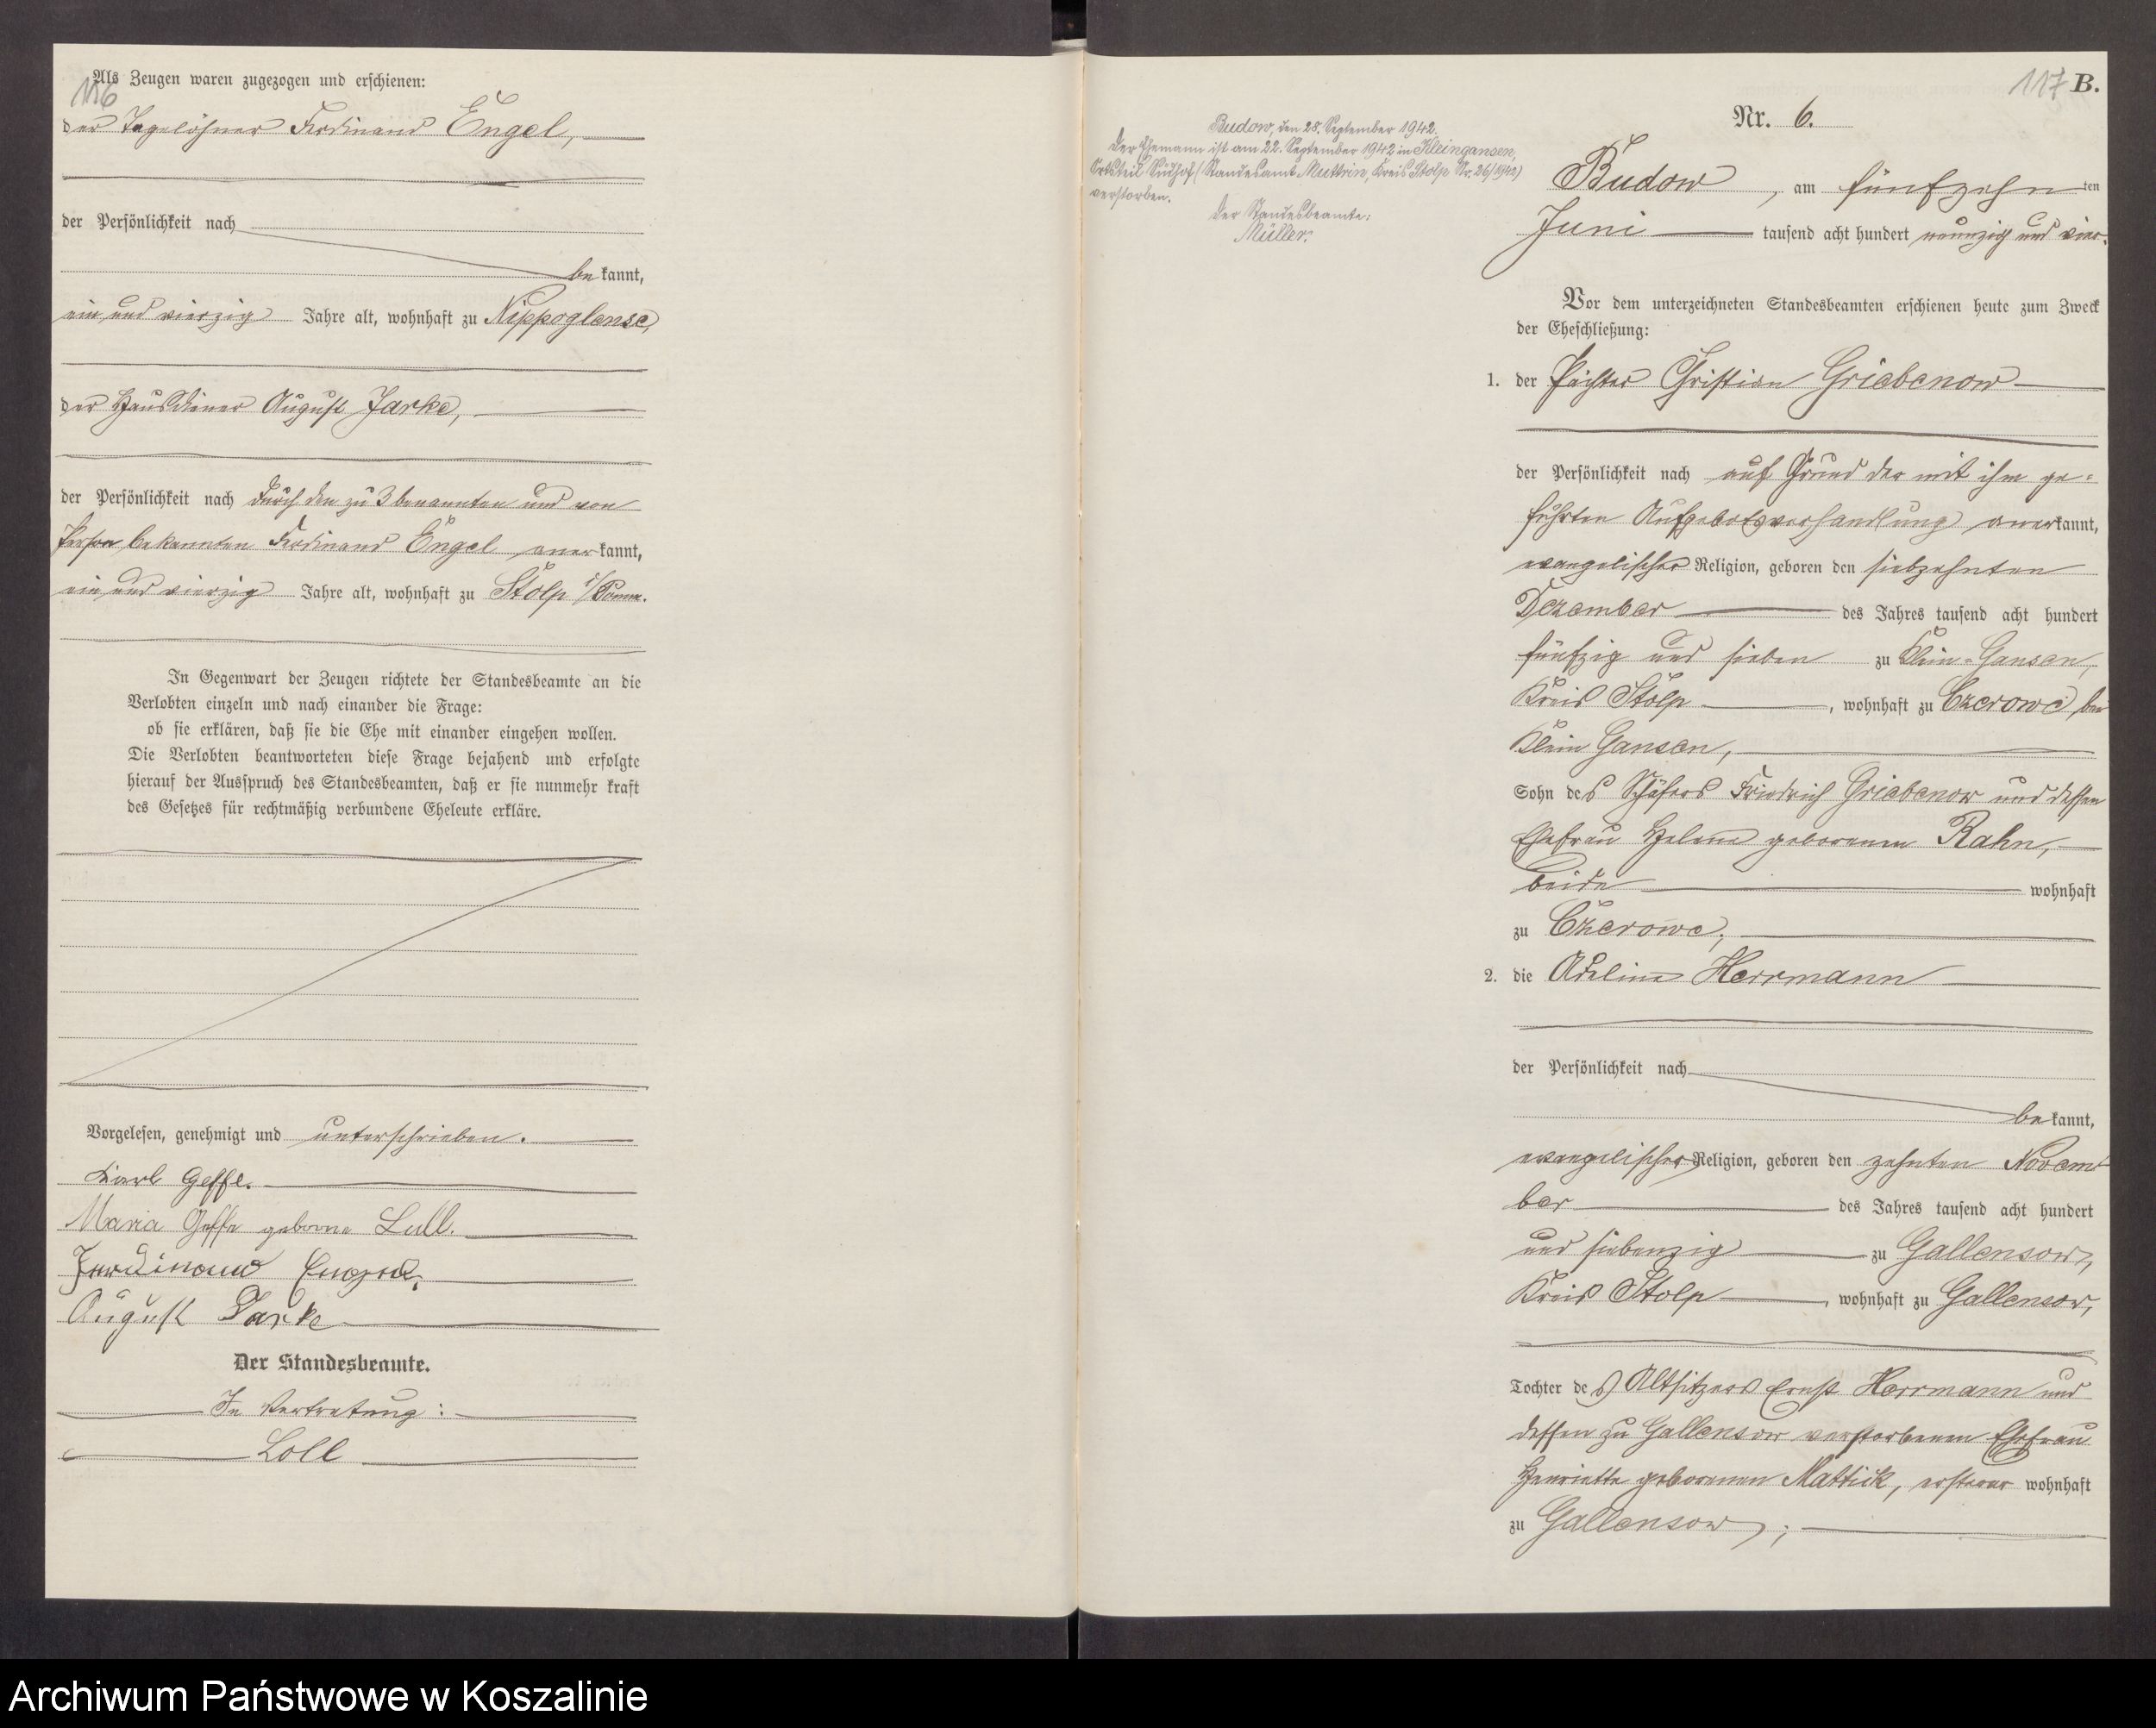 116
Als Zeugen waren zugezogen und erschienen:
der Tagelöhner Ferdinand Engel,
der Persönlichkeit nach
be kannt,
ein und vierzig Jahre alt, wohnhaft zu Nippoglense,
der Hausdiener August Jarke,
der Persönlichkeit nach durch den zu 3 benannten und von
Person bekannten Ferdinand Engel aner kannt,
ein und vierzig Jahre alt, wohnhaft zu Stolp i/Pomm.
In Gegenwart der Zeugen richtete der Standesbeamte an die
Verlobten einzeln und nach einander die Frage:
ob sie erklären, daß sie die Ehe mit einander eingehen wollen.
Die Verlobten beantworteten diese Frage bejahend und erfolgte
hierauf der Ausspruch des Standesbeamten, daß er sie nunmehr kraft
des Gesetzes für rechtmäßig verbundene Eheleute erkläre.
Vorgelesen, genehmigt und unterschrieben.
Karl Geffe.
Maria Geffe geborne Lull.
Ferdinand Engel.
August Jarke
Der Standesbeamte.
In Vertretung:
Loll
117 B.
Nr. 6.
Budow, den 28. September 1942.
Der Ehemann ist am 22. September 1942 in Kleingansen,
Ortsteil Südhof (Standesamt Muttrin, Kreis Stolp Nr. 26/1942)
verstorben.
Der Standesbeamte:
Müller.
Budow, am fünfzehn ten
Juni tausend acht hundert neunzig und vier.
Vor dem unterzeichneten Standesbeamten erschienen heute zum Zweck
der Eheschließung:
1. der Pächter Christian Griebenow
der Persönlichkeit nach auf Grund der mit ihm ge-
führten Aufgebotsverhandlung aner kannt,
evangelischer Religion, geboren den siebzehnten
Dezember des Jahres tausend acht hundert
fünfzig und sieben zu Klein-Gansen,
Kreis Stolp, wohnhaft zu Czerowe bei
Klein Gansen,
Sohn des Schäfers Friedrich Griebenow und dessen
Ehefrau Helene geborenen Rahn,
beide wohnhaft
zu Czerowe;
2. die Adeline Herrmann
der Persönlichkeit nach
be kannt,
evangelischer Religion, geboren den zehnten Novem
ber des Jahres tausend acht hundert
und siebenzig zu Gallensow,
Kreis Stolp, wohnhaft zu Gallensow,
Tochter des Altsitzers Ernst Herrmann und
dessen zu Gallensow verstorbenen Ehefrau
Henriette geborenen Mattick, ersterer wohnhaft
zu Gallensow;
Archiwum Państwowe w Koszalinie